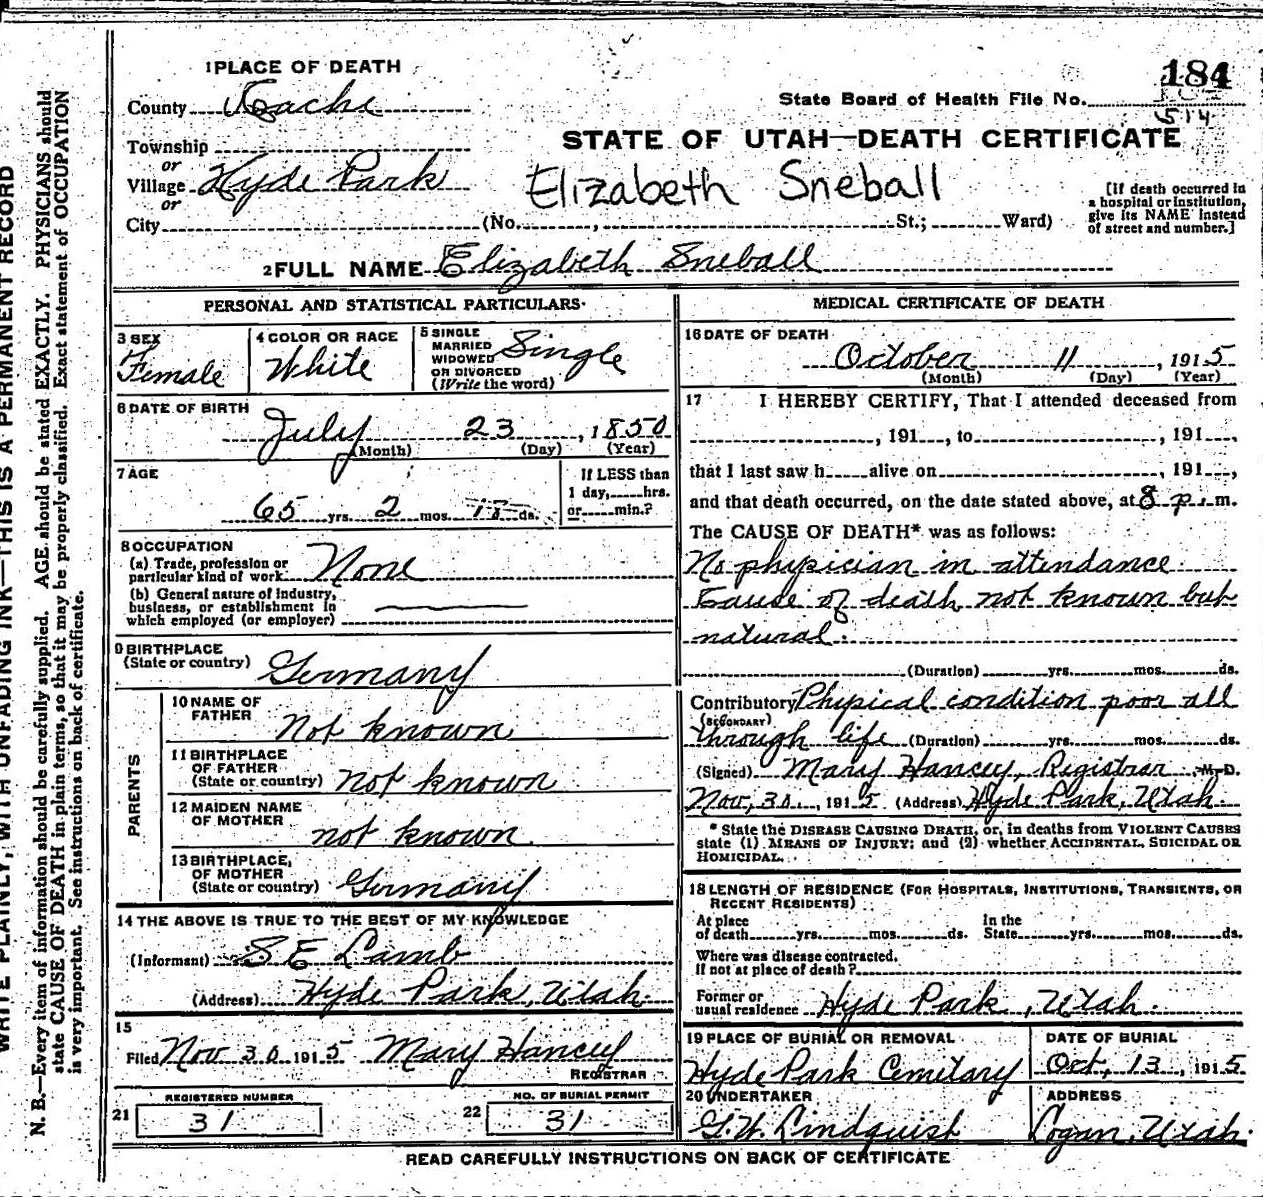 1 PLACE OF DEATH
184
County Cache
State Board of Health File No.
514
STATE OF UTAH—DEATH CERTIFICATE
Township
or
Village Hyde Park
or
Elizabeth Sneball
[If death occurred in
a hospital or institution,
give its NAME instead
of street and number.]
City (No. , St.; Ward)
2 FULL NAME Elizabeth Sneball
PERSONAL AND STATISTICAL PARTICULARS
3 SEX
Female
4 COLOR OR RACE
White
5 SINGLE
MARRIED
WIDOWED
OR DIVORCED
(Write the word)
Single
6 DATE OF BIRTH
July 23, 1850
(Month) (Day) (Year)
7 AGE
65 yrs. 2 mos. ds.
If LESS than
1 day, hrs.
or min.?
8 OCCUPATION
(a) Trade, profession or
particular kind of work None
(b) General nature of industry,
business, or establishment in
which employed (or employer)
9 BIRTHPLACE
(State or country) Germany
PARENTS
10 NAME OF
FATHER Not known
11 BIRTHPLACE
OF FATHER
(State or country) not known
12 MAIDEN NAME
OF MOTHER not known
13 BIRTHPLACE,
OF MOTHER
(State or country) Germany
14 THE ABOVE IS TRUE TO THE BEST OF MY KNOWLEDGE
(Informant) S E Lamb
(Address) Hyde Park, Utah.
15
Filed Nov 30 1915 Mary Hancey
REGISTRAR
21 REGISTERED NUMBER
31
22 NO. OF BURIAL PERMIT
31
MEDICAL CERTIFICATE OF DEATH
16 DATE OF DEATH
October 11, 1915
(Month) (Day) (Year)
17 I HEREBY CERTIFY, That I attended deceased from
, 191 , to , 191 ,
that I last saw h alive on , 191 ,
and that death occurred, on the date stated above, at 8 p.m.
The CAUSE OF DEATH* was as follows:
No physician in attendance.
Cause of death not known but
natural.
(Duration) yrs. mos. ds.
Contributory Physical condition poor all
(SECONDARY)
through life (Duration) yrs. mos. ds.
(Signed) Mary Hancey, Registrar M.D.
Nov, 30, 1915 (Address) Hyde Park, Utah.
* State the DISEASE CAUSING DEATH, or, in deaths from VIOLENT CAUSES
state (1) MEANS OF INJURY; and (2) whether ACCIDENTAL, SUICIDAL OR
HOMICIDAL.
18 LENGTH OF RESIDENCE (FOR HOSPITALS, INSTITUTIONS, TRANSIENTS, OR
RECENT RESIDENTS)
At place
of death yrs. mos. ds.
In the
State yrs. mos. ds.
Where was disease contracted,
If not at place of death?
Former or
usual residence Hyde Park, Utah.
19 PLACE OF BURIAL OR REMOVAL
Hyde Park Cemetary
DATE OF BURIAL
Oct, 13, 1915
20 UNDERTAKER
G. W. Lindquist
ADDRESS
Logan, Utah.
READ CAREFULLY INSTRUCTIONS ON BACK OF CERTIFICATE
WRITE PLAINLY, WITH UNFADING INK—THIS IS A PERMANENT RECORD
N. B.—Every item of information should be carefully supplied. AGE should be stated EXACTLY. PHYSICIANS should
state CAUSE OF DEATH in plain terms, so that it may be properly classified. Exact statement of OCCUPATION
is very important. See instructions on back of certificate.